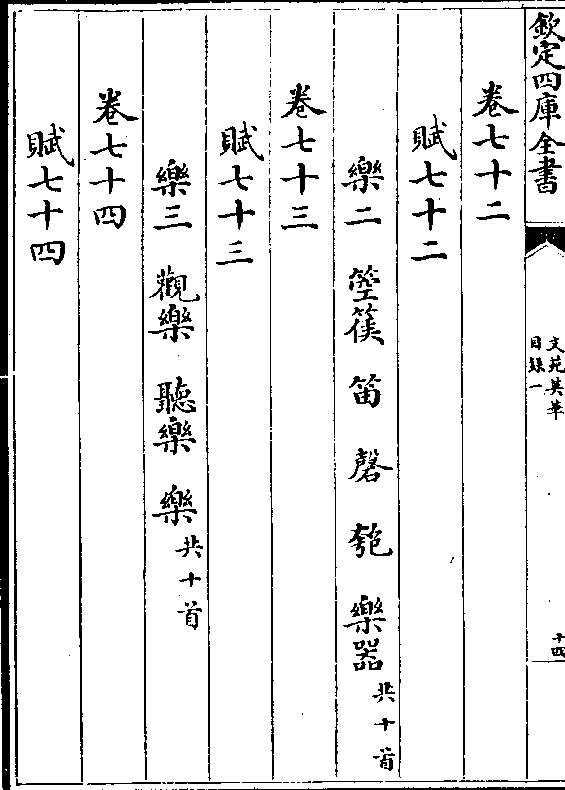 欽定四庫全書
文苑英華
目録一
十四
卷七十二
賦七十二
樂二 箜篌 笛 磬 匏 樂器 共十首
卷七十三
賦七十三
樂三 觀樂 聽樂 樂 共十首
卷七十四
賦七十四